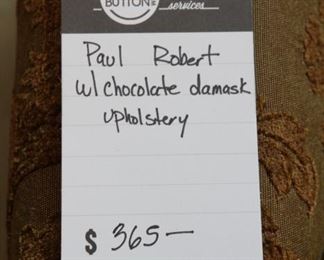 BUTTON
services
Paul Robert
w/ chocolate damask
upholstery
$ 365—